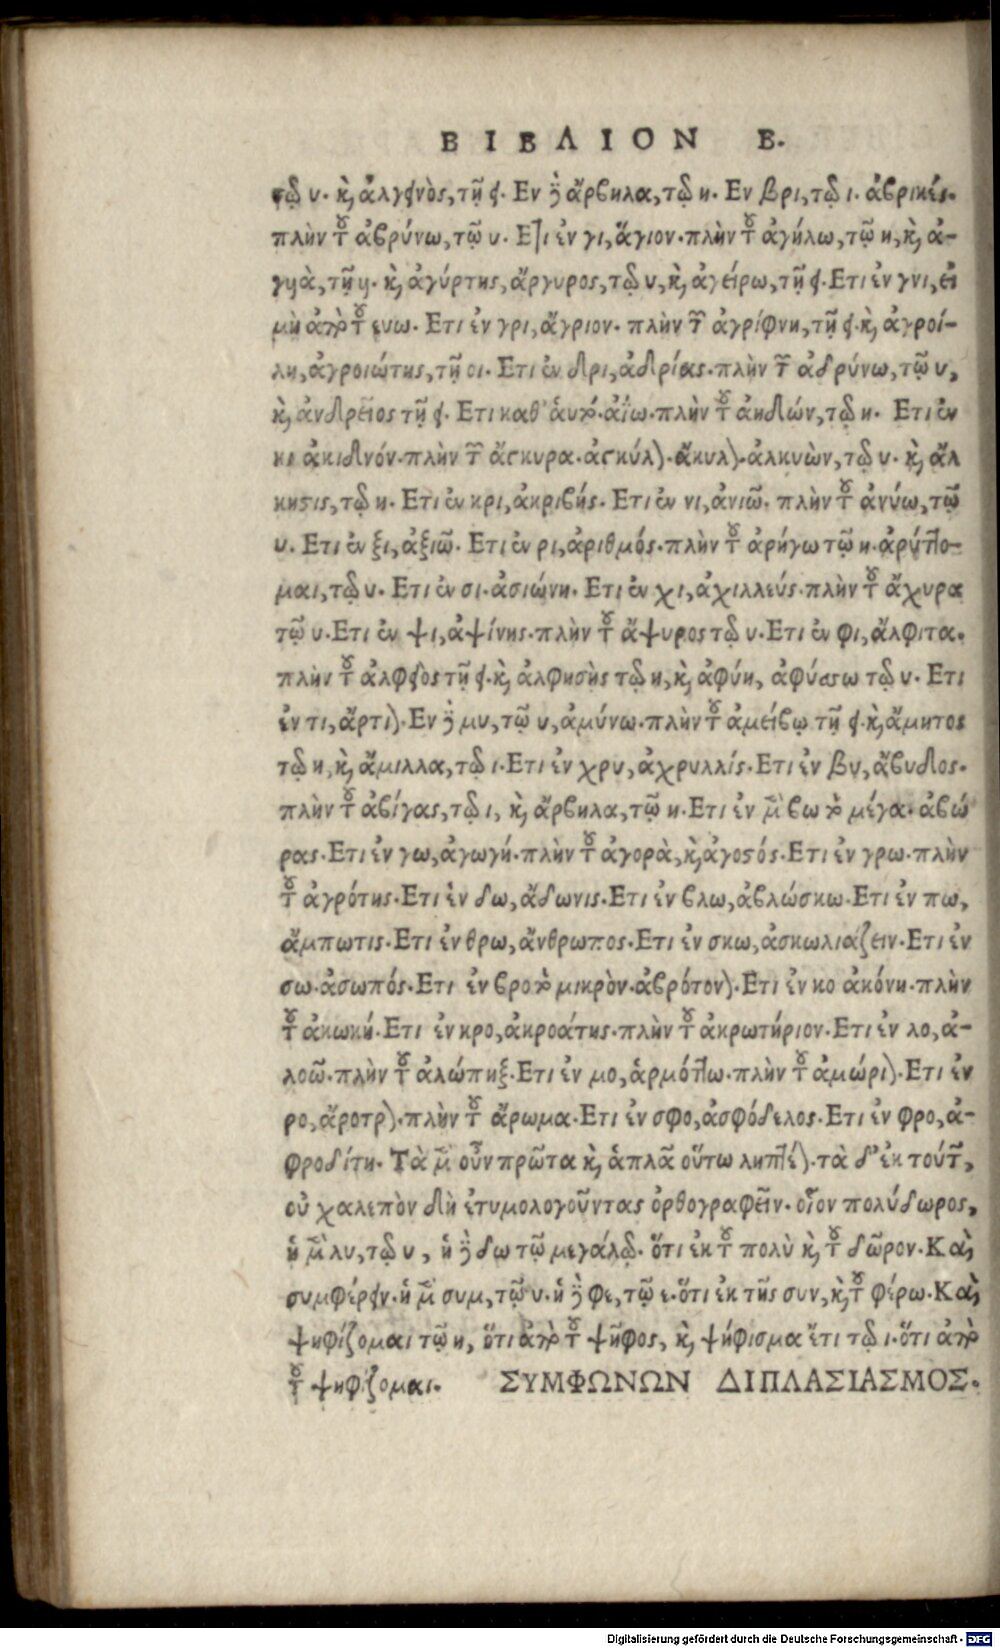 ΒΙΒΛΙΟΝ Β.
τῷ υ. κ̀, ἀλγεινὸς, τῇ ει. Εν δὲ ἄρβηλα, τῷ η. Εν βρι, τῷ ι. ἀβρικές.
πλὴν τοῦ ἀβρύνω, τῷ υ. Ετι ἐν γι, ἅγιον. πλὴν τοῦ ἀγήλω, τῷ η, κ̀, ἀ-
γυιὰ, τῇ υι. κ̀, ἀγύρτης, ἄργυρος, τῷ υ, κ̀, ἀγείρω, τῇ ει. Ετι ἐν γνι, εἰ
μὴ ἀπὸ τοῦ ευω. Ετι ἐν γρι, ἄγριον. πλὴν τῶν ἀγρίφνη, τῇ ει. κ̀, ἀγροί-
λη, ἀγροιώτης, τῇ οι. Ετι ἐν δρι, ἀδρίας. πλὴν τῶν ἁδρύνω, τῷ υ,
κ̀, ἀνδρεῖος τῇ ει. Ετι καθ' ἁυτὸ. ἀΐω. πλὴν τοῦ ἀηδών, τῷ η. Ετι ἐν
κι ἀκιδνόν. πλὴν τῶν ἄσκυρα. ἀσκύλ). ἄκυλ). ἀλκυὼν, τῷ υ. κ̀, ἄλ
κηστις, τῷ η. Ετι ἐν κρι, ἀκριβής. Ετι ἐν νι, ἀνιῶ. πλὴν τοῦ ἀνύω, τῷ
υ. Ετι ἐν ξι, ἀξιῶ. Ετι ἐν ρι, ἀριθμός. πλὴν τοῦ ἀρήγω τῷ η. ἀρύττο-
μαι, τῷ υ. Ετι ἐν σι. ἀσιώνη. Ετι ἐν χι, ἀχιλλεύς. πλὴν τοῦ ἄχυρα
τῷ υ. Ετι ἐν ψι, ἀψίνης. πλὴν τοῦ ἄψυρος τῷ υ. Ετι ἐν φι, ἄλφιτα.
πλὴν τοῦ ἀλφειος τῇ ει. κ̀, ἀλφηστὴς τῷ η, κ̀, ἀφύη, ἀφύσσω τῷ υ. Ετι
ἐν τι, ἄρτι). Εν δὲ μυ, τῷ υ, ἀμύνω. πλὴν τοῦ ἀμείβω τῇ ει. κ̀, ἄμητος
τῷ η, κ̀, ἅμιλλα, τῷ ι. Ετι ἐν χρυ, ἀχρυλλίς. Ετι ἐν βυ, ἄβυδος.
πλὴν τοῦ ἀβίγας, τῷ ι, κ̀, ἄρβηλα, τῷ η. Ετι ἐν μὲν βω τὸ μέγα. ἀβώ
ρας. Ετι ἐν γω, ἀγωγή. πλὴν τοῦ ἀγορὰ, κ̀, ἀγοστός. Ετι ἐν γρω. πλὴν
τοῦ ἀγρότης. Ετι ἐν δω, ἄδωνις. Ετι ἐν βλω, ἀβλώσκω. Ετι ἐν πω,
ἄμπωτις. Ετι ἐν θρω, ἄνθρωπος. Ετι ἐν σκω, ἀσκωλιάζειν. Ετι ἐν
σω. ἀσωπός. Ετι ἐν βρο τὸ μικρὸν. ἀβρότον). Ετι ἐν κο ἀκόνη. πλὴν
τοῦ ἀκωκή. Ετι ἐν κρο, ἀκροάτης. πλὴν τοῦ ἀκρωτήριον. Ετι ἐν λο, ἀ-
λοῶ. πλὴν τοῦ ἀλώπηξ. Ετι ἐν μο, ἁρμόττω. πλὴν τοῦ ἀμώρι). Ετι ἐν
ρο, ἄροτρ). πλὴν τοῦ ἄρωμα. Ετι ἐν σφο, ἀσφόδελος. Ετι ἐν φρο, ἀ-
φροδίτη. Τὰ μὲν οὖν πρῶτα κ̀, ἁπλᾶ οὕτω ληπτέ). τὰ δ' ἐκ τούτων,
οὐ χαλεπὸν δὴ ἐτυμολογοῦντας ὀρθογραφεῖν. οἷον πολύδωρος,
ἡ μὲν λυ, τῷ υ, ἡ δὲ δω τῷ μεγάλῳ. ὅτι ἐκ τοῦ πολὺ κ̀, τοῦ δῶρον. Καὶ
συμφέρειν. ἡ μὲν συμ, τῷ υ. ἡ δὲ φε, τῷ ε. ὅτι ἐκ τῆς συν, κ̀, τοῦ φέρω. Καὶ
ψηφίζομαι τῷ η, ὅτι ἀπὸ τοῦ ψῆφος, κ̀, ψήφισμα ἔτι τῷ ι. ὅτι ἀπὸ
τοῦ ψηφίζομαι. ΣΥΜΦΩΝΩΝ ΔΙΠΛΑΣΙΑΣΜΟΣ.
Digitalisierung gefördert durch die Deutsche Forschungsgemeinschaft - DFG